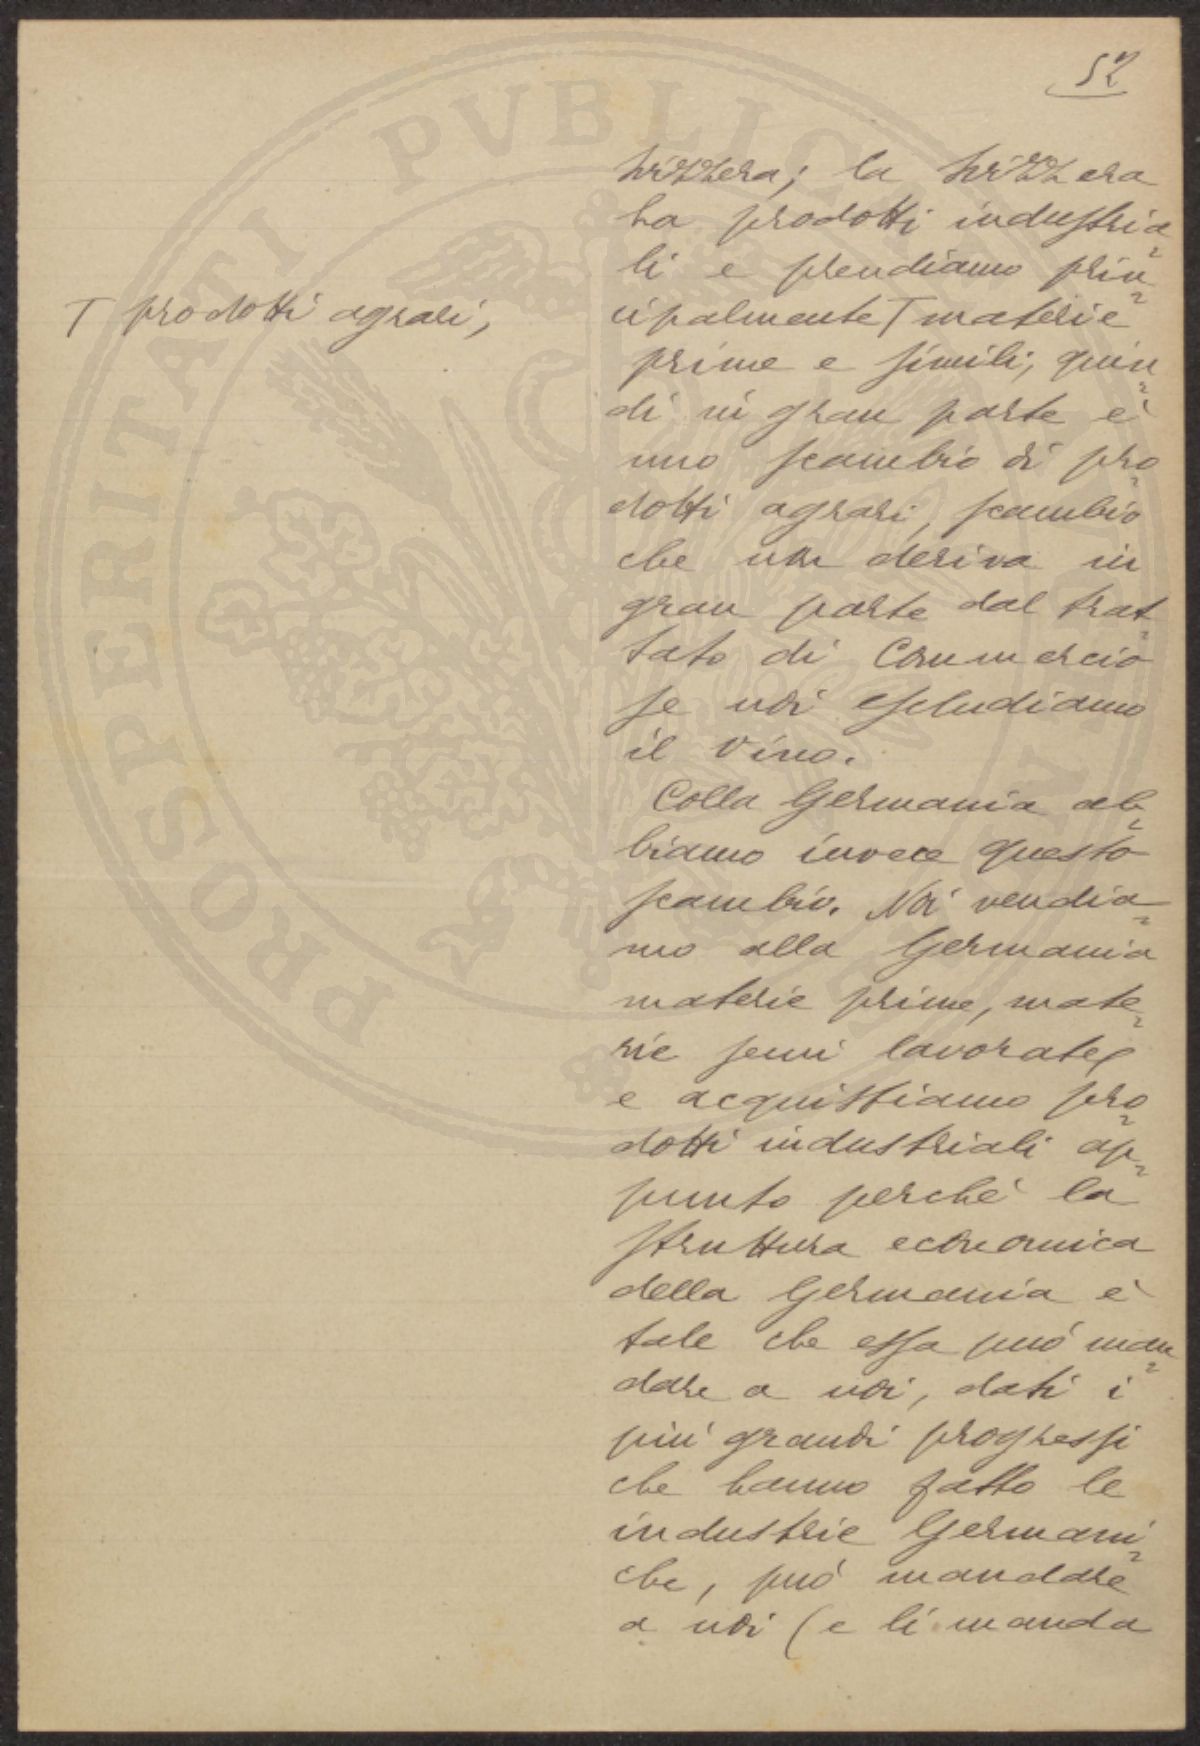 52
Svizzera; la Svizzera
ha prodotti industria=
li e prendiamo prin=
cipalmente T materie
prime e simili; quin=
di in gran parte è
uno scambio di pro=
dotti agrari, scambio
che non deriva in
gran parte dal trat=
tato di Commercio
se noi escludiamo
il vino.
Colla Germania ab=
biamo invece questo
scambio. Noi vendia=
mo alla Germania
materie prime, mate=
rie semi lavorate,
e acquistiamo pro=
dotti industriali ap=
punto perché la
struttura economica
della Germania è
tale che essa può man=
dare a noi, dati i
più grandi progressi
che hanno fatto le
industrie Germani=
che, può mandare
a noi (e li manda
T prodotti agrari,
PROSPERITATI PVBLIC